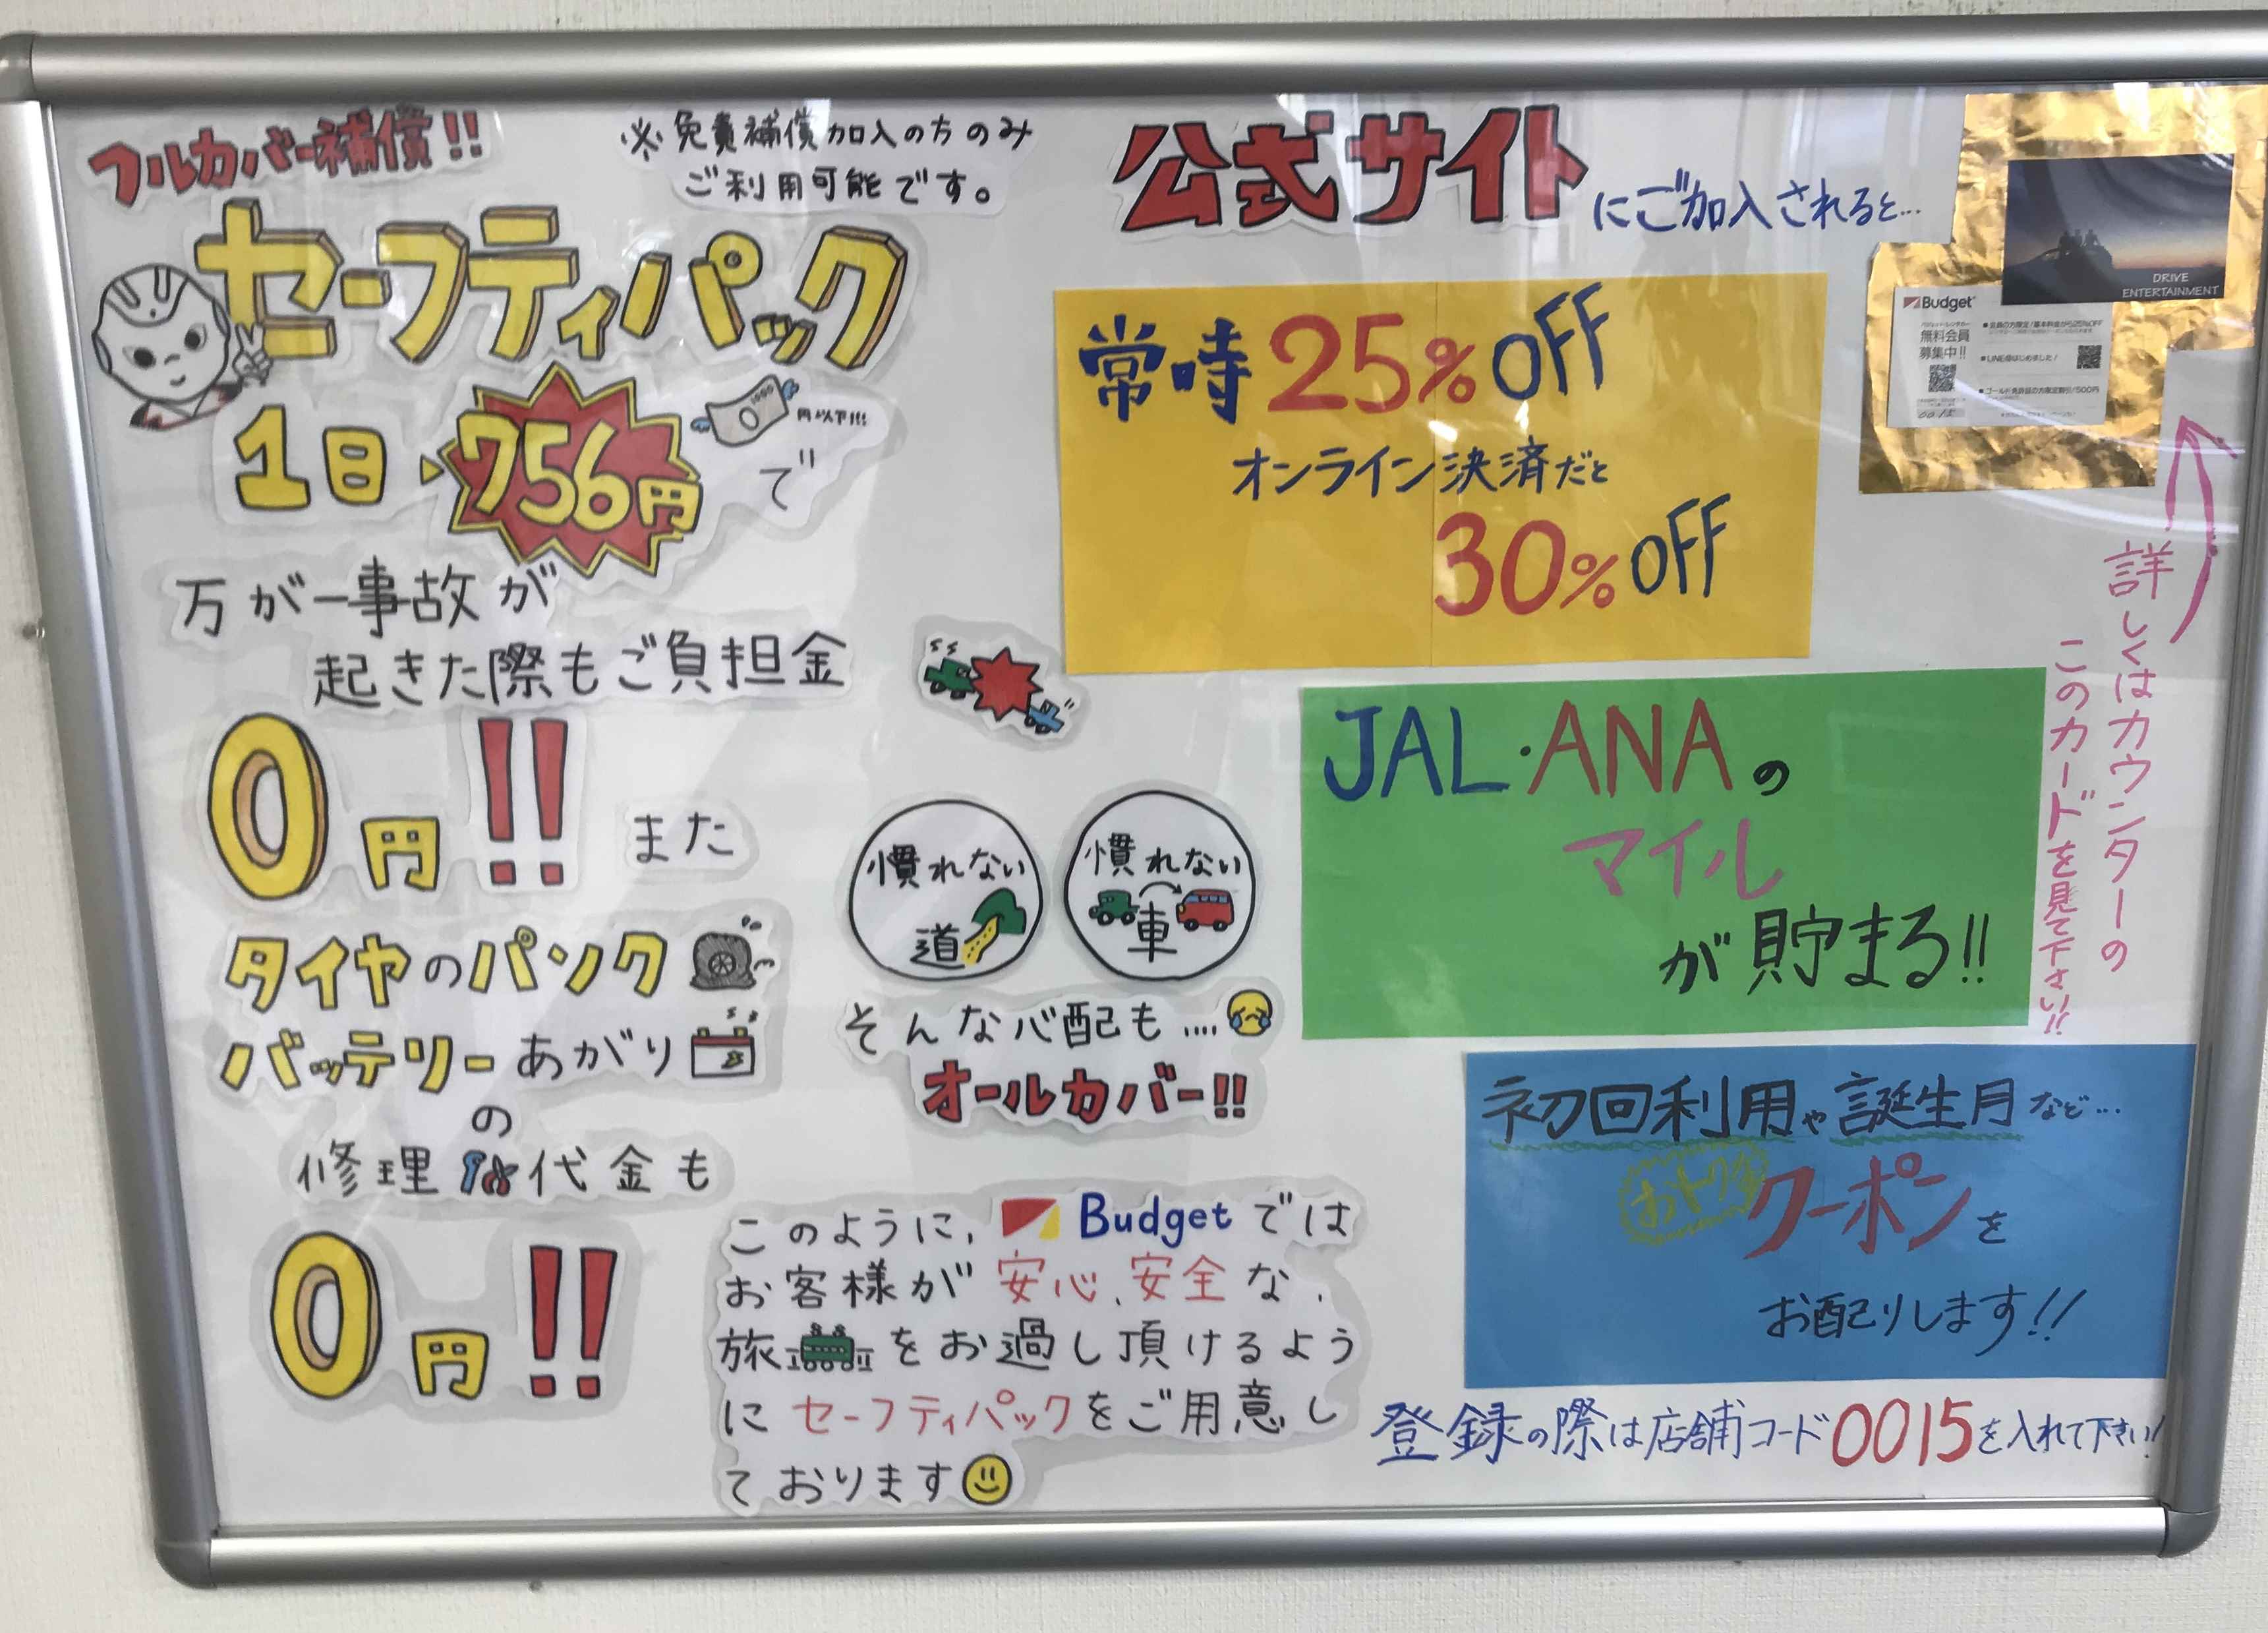 フルカバー補償!!
※免責補償加入の方のみ
ご利用可能です。
セーフティパック
1日 756円 で
1000
円以下!!!
万が一事故が
起きた際もご負担金
0円!! また
タイヤのパンク
バッテリーあがり
の
修理代金も
0円!!
慣れない
道
慣れない
車
そんな心配も....
オールカバー!!
このように, Budgetでは
お客様が安心、安全な、
旅をお過し頂けるよう
にセーフティパックをご用意し
ております
公式サイトにご加入されると...
常時25%OFF
オンライン決済だと
30%OFF
JAL・ANAの
マイル
が貯まる!!
初回利用や誕生月など...
おトクなクーポンを
お配りします!!
登録の際は店舗コード0015を入れて下さい!
詳しくはカウンターの
このカードを見て下さい!!
DRIVE
ENTERTAINMENT
Budget
無料会員
募集中!!
■会員の方限定!基本料金から25%OFF
■LINE@はじめました!
■ゴールド免許証の方限定割引!500円
0015